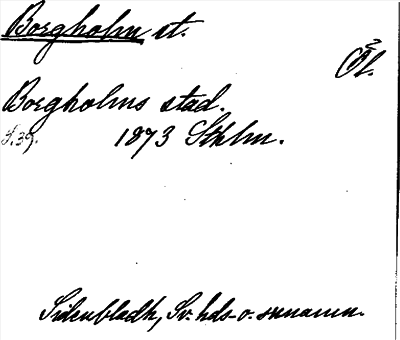 Borgholm st.
Öl.
Borgholms stad.
s. 39. 1873 Sthlm.
Sidenbladh, Sv. hds- o. sznamn.